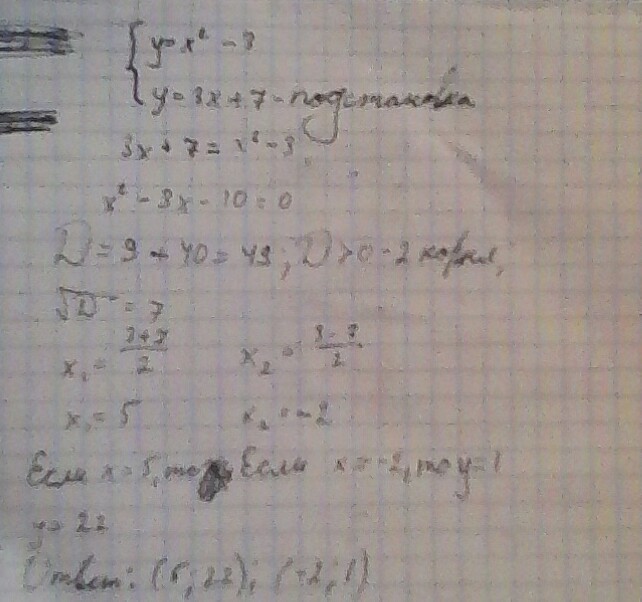 y=x² - 3
y=3x+7 - подстановка
3x+7=x²-3
x²-3x-10=0
D=9+40=49; D>0-2 корня,
√D = 7
x₁=(3+7)/2 x₂=(3-7)/2
x₁=5 x₂=-2
Если x=5, то Если x=-2, то y=1
y=22
Ответ: (5; 22); (-2; 1)